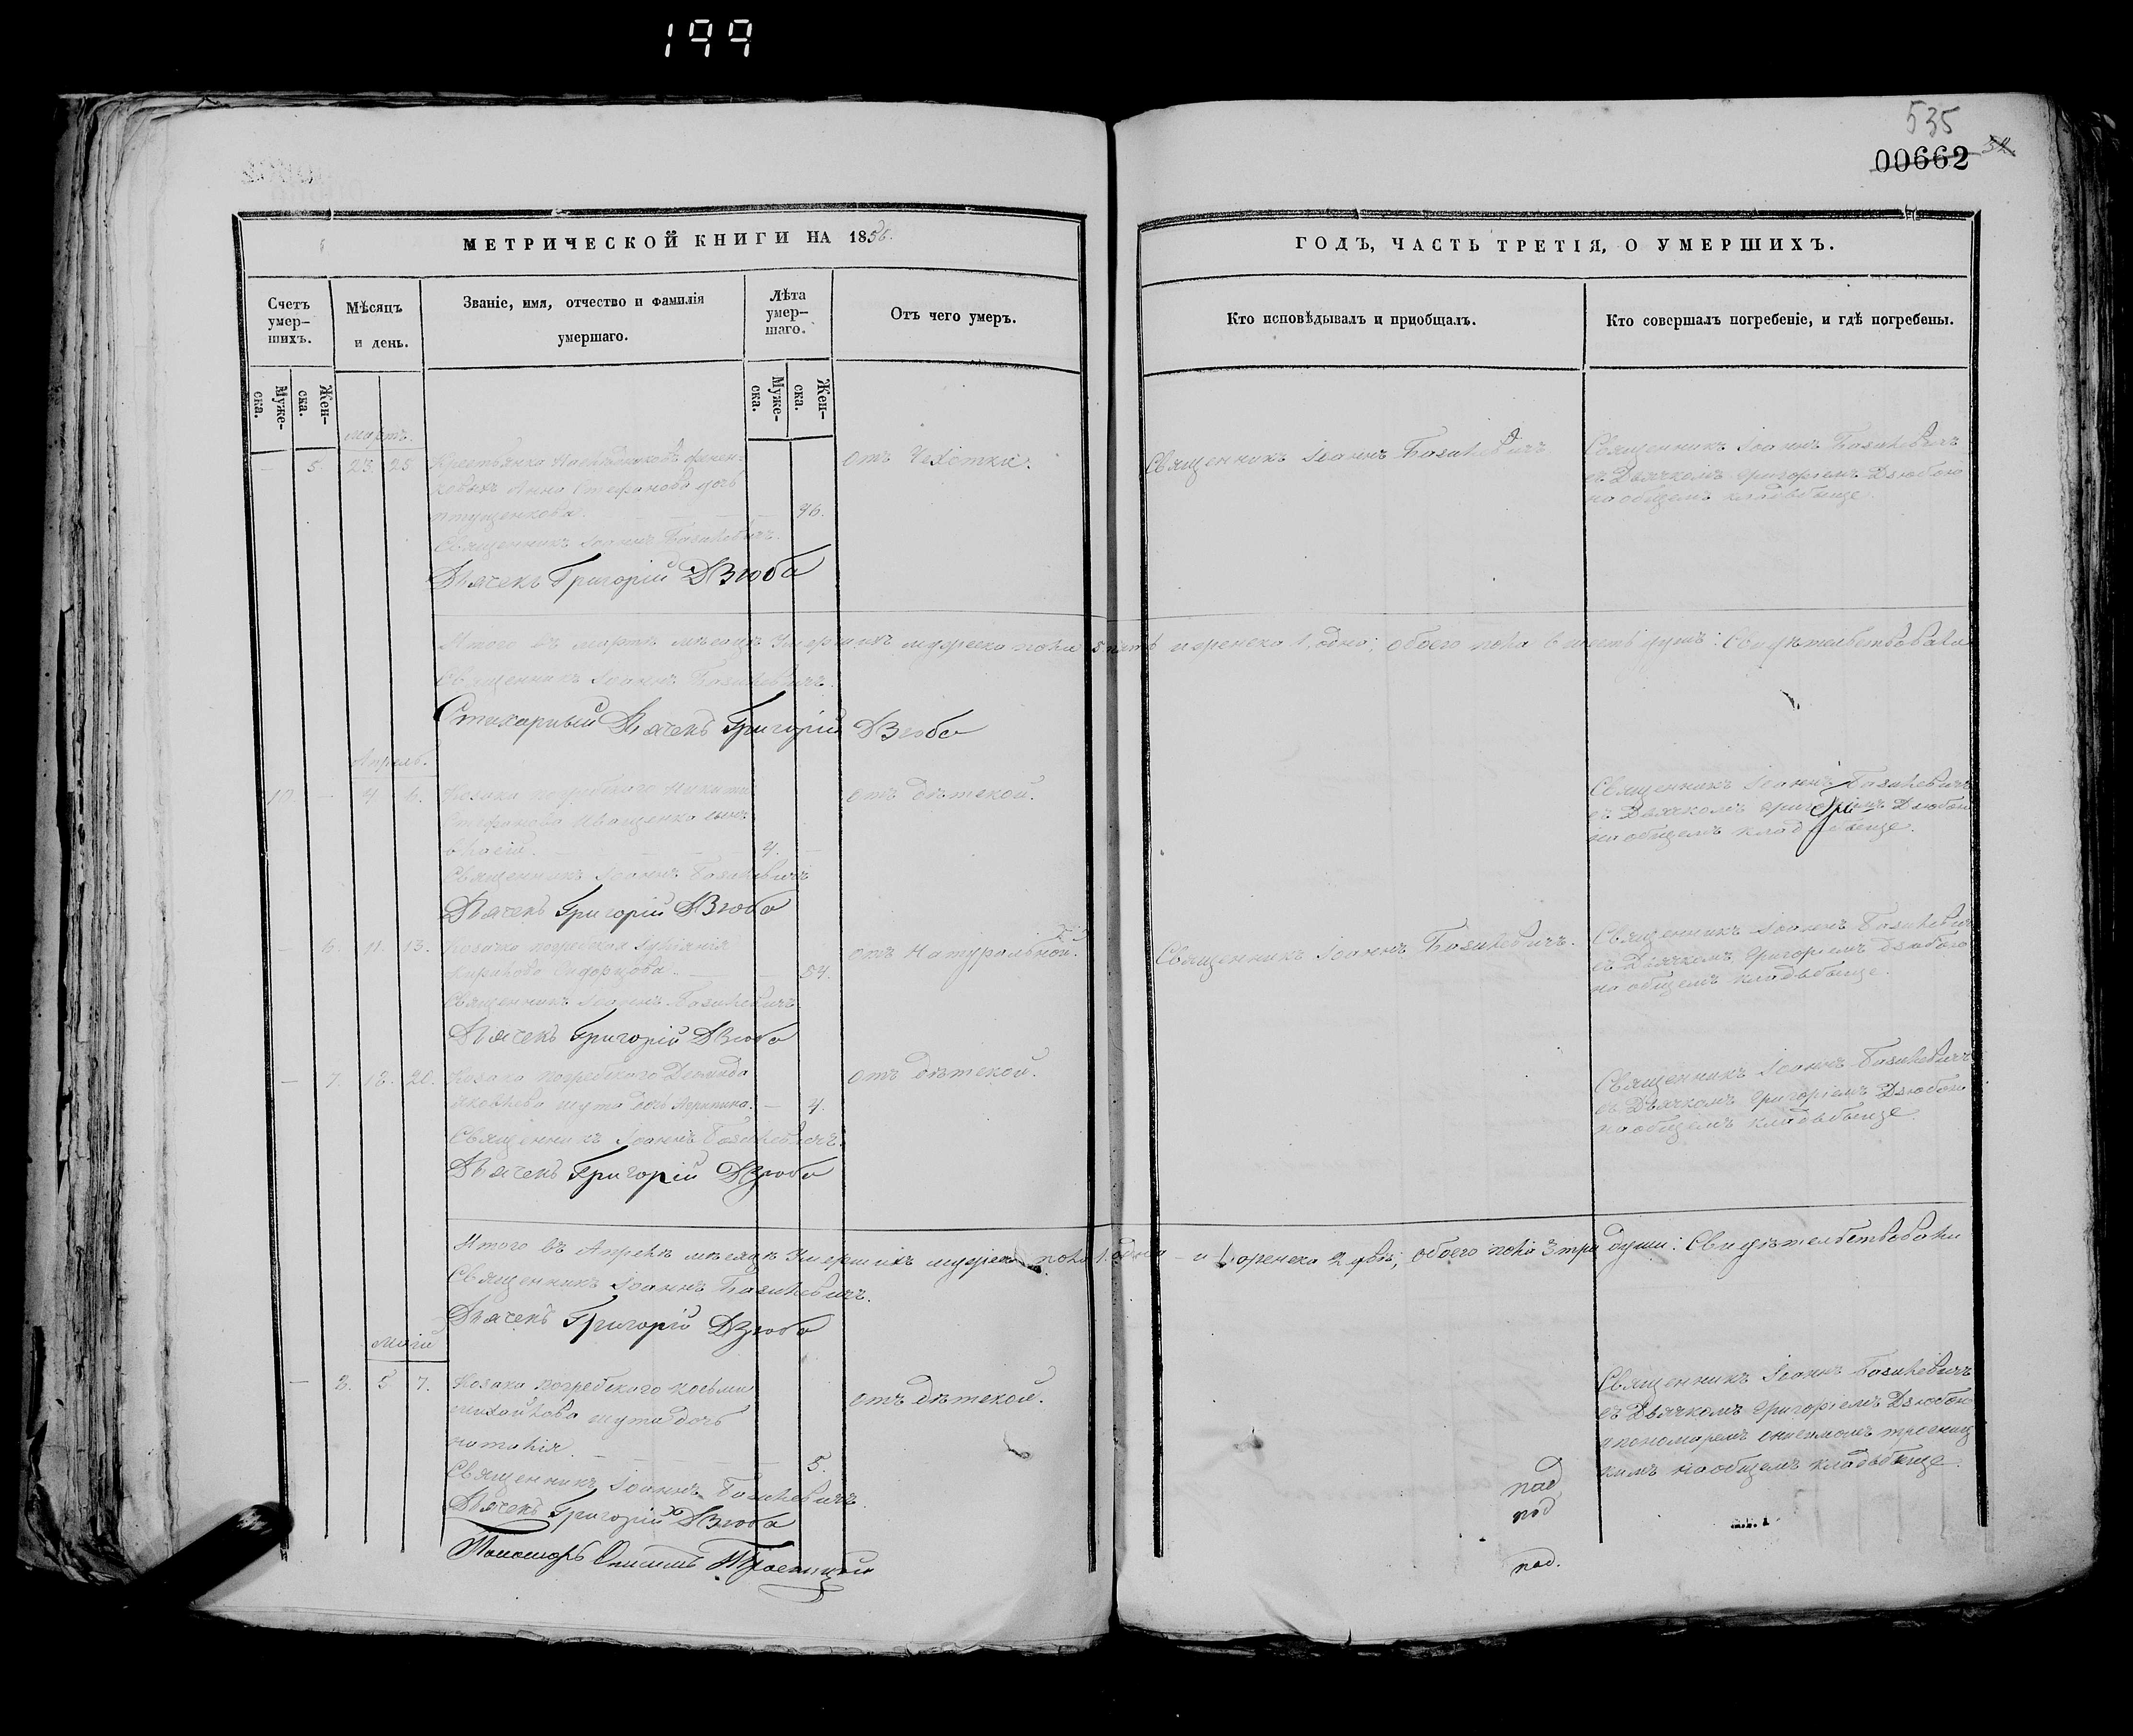 199
535
00662
МЕТРИЧЕСКОЙ КНИГИ НА 1856.
ГОДЪ, ЧАСТЬ ТРЕТІЯ, О УМЕРШИХЪ.
Счетъ умер-шихъ.
Мѣсяцъ и день.
Званіе, имя, отчество и фамилія умершаго.
Лѣта умер-шаго.
Отъ чего умеръ.
Кто исповѣдывалъ и приобщалъ.
Кто совершалъ погребеніе, и гдѣ погребены.
Муже-ска.
Жен-ска.
Муже-ска.
Жен-ска.
Мартъ.
— 5. 23. 25
Крестьянка
Анна Стефанова дочь
отъ Чехотки.
Священникъ Іоаннъ Базилевичъ
Священникъ Іоаннъ Базилевичъ
съ Дьячкомъ Григоріемъ Дзюбою
на общемъ кладбыще.
Священникъ Іоаннъ Базилевичъ.
Дьячекъ Григорій Дзюба
Итого въ мартѣ мѣсяцѣ Умершихъ мужеска пола 5 пять и женска 1, одна; обоего пола 6 шесть душъ: Свидѣтельствовали
Священникъ Іоаннъ Базилевичъ.
Стихарный Дьячекъ Григорій Дзюба
Апрель.
10 — 4 6.
Козака погребскаго Никиты
Стефанова Иващенка сынъ
4.
отъ дѣтской.
Священникъ Іоаннъ Базилевичъ
съ Дьячкомъ Григоріемъ Дзюбою
на общемъ кладбыще.
Священникъ Іоаннъ Базилевичъ
Дьячекъ Григорій Дзюба
— 6. 11. 13.
Козачка погребская
54.
отъ Натуральной.
Священникъ Іоаннъ Базилевичъ.
Священникъ Іоаннъ Базилевичъ
съ Дьячкомъ Григоріемъ Дзюбою
на общемъ кладьбыще.
Священникъ Іоаннъ Базилевичъ
Дьячекъ Григорій Дзюба
— 7. 18. 20.
Козака погребскаго Демида
Яковлева Шута дочь Агрипина. — 4.
отъ дѣтской.
Священникъ Іоаннъ Базилевичъ
съ Дьячкомъ Григоріемъ Дзюбою
на общемъ кладьбыще.
Священникъ Іоаннъ Базилевичъ.
Дьячекъ Григорій Дзюба
Итого въ Апрелѣ мѣсяцѣ Умершихъ мужеска пола 1. одна и женска 2 двѣ; обоего пола 3 три души: Свидѣтелствовали
Священникъ Іоаннъ Базилевичъ.
Дьячекъ Григорій Дзюба
Маій
— 8. 5 7.
Козака погребскаго Косьмы
Михайлова Шута дочь
Наталія.
5.
отъ дѣтской.
Священникъ Іоаннъ Базилевичъ
съ Дьячкомъ Григоріемъ Дзюбою
и пономаремъ Онисимомъ Троениц
кимъ на общемъ кладьбыще.
Священникъ Іоаннъ Базилевичъ.
Дьячекъ Григорій Дзюба
Пономарь Онисимъ Троеницкій
под
под
под.